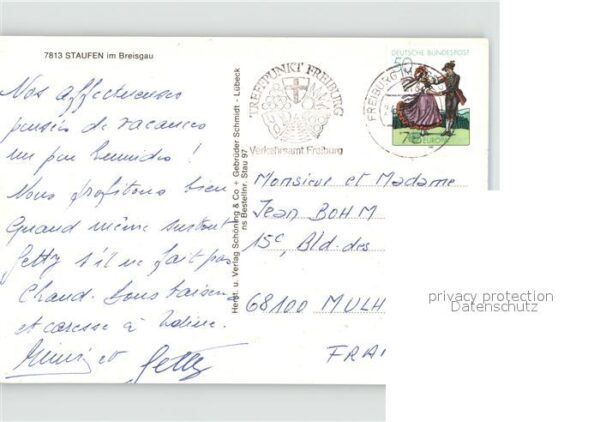 7813 STAUFEN im Breisgau
Nos affectueuses
pensées de vacances
un peu humides !
Nous profitons bien
quand même surtout
Getty s'il ne fait pas
chaud. Bons baisers
et caresse à
et Getty
Herst. u. Verlag Schöning & Co + Gebrüder Schmidt - Lübeck
Bestellnr. Stau 97
TREFFPUNKT FREIBURG
Verkehrsamt Freiburg
FREIBURG
DEUTSCHE BUNDESPOST
50
EUROPA
Monsieur et Madame
Jean BOHM
15c, Bld. des
68100 MULH
FRA
privacy protection
Datenschutz